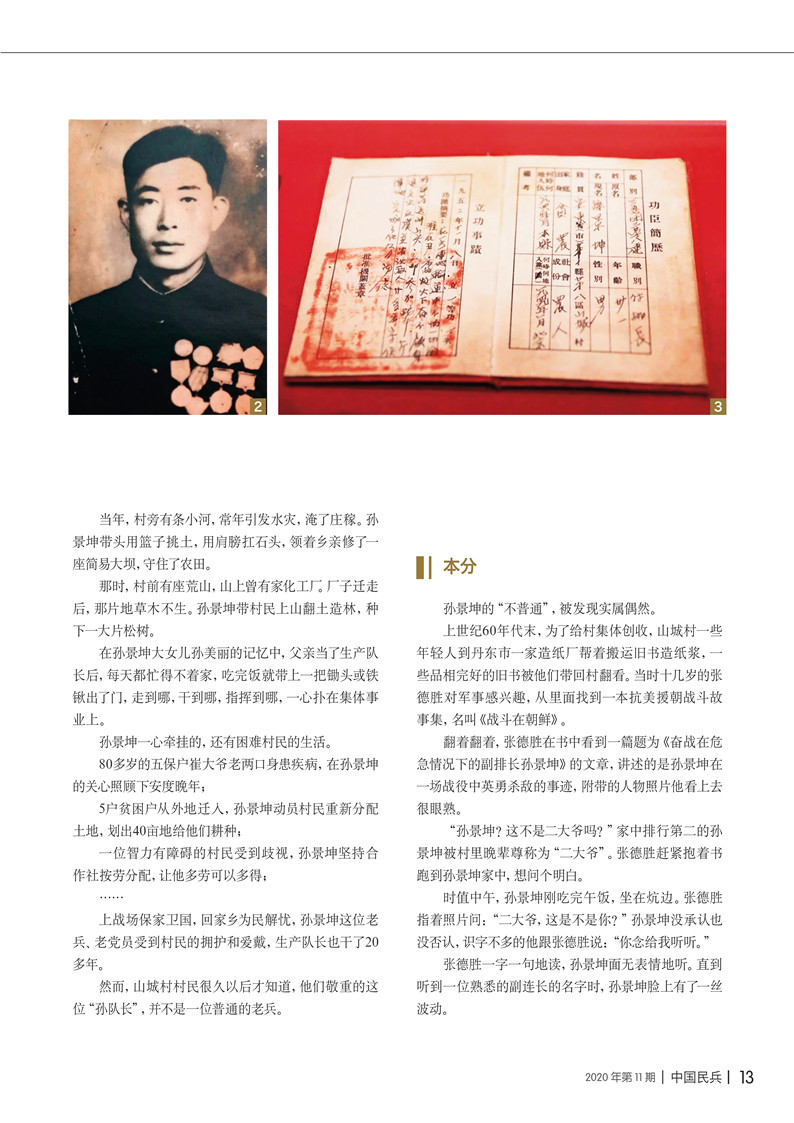 2
3
功臣簡歷
部別
職別
姓原名
年齡
名現名
性別
男
籍貫
縣
村
家庭出身
農
社會成份
農人
何時何地入伍
何時何地入黨
備考
立功事蹟
一九五二年十一月
功績摘要
批准機關蓋章
当年，村旁有条小河，常年引发水灾，淹了庄稼。孙
景坤带头用篮子挑土，用肩膀扛石头，领着乡亲修了一
座简易大坝，守住了农田。
那时，村前有座荒山，山上曾有家化工厂。厂子迁走
后，那片地草木不生。孙景坤带村民上山翻土造林，种
下一大片松树。
在孙景坤大女儿孙美丽的记忆中，父亲当了生产队
长后，每天都忙得不着家，吃完饭就带上一把锄头或铁
锹出了门，走到哪，干到哪，指挥到哪，一心扑在集体事
业上。
孙景坤一心牵挂的，还有困难村民的生活。
80多岁的五保户崔大爷老两口身患疾病，在孙景坤
的关心照顾下安度晚年；
5户贫困户从外地迁入，孙景坤动员村民重新分配
土地，划出40亩地给他们耕种；
一位智力有障碍的村民受到歧视，孙景坤坚持合
作社按劳分配，让他多劳可以多得；
……
上战场保家卫国，回家乡为民解忧，孙景坤这位老
兵、老党员受到村民的拥护和爱戴，生产队长也干了20
多年。
然而，山城村村民很久以后才知道，他们敬重的这
位“孙队长”，并不是一位普通的老兵。
本分
孙景坤的“不普通”，被发现实属偶然。
上世纪60年代末，为了给村集体创收，山城村一些
年轻人到丹东市一家造纸厂帮着搬运旧书造纸浆，一
些品相完好的旧书被他们带回村翻看。当时十几岁的张
德胜对军事感兴趣，从里面找到一本抗美援朝战斗故
事集，名叫《战斗在朝鲜》。
翻着翻着，张德胜在书中看到一篇题为《奋战在危
急情况下的副排长孙景坤》的文章，讲述的是孙景坤在
一场战役中英勇杀敌的事迹，附带的人物照片他看上去
很眼熟。
“孙景坤？这不是二大爷吗？”家中排行第二的孙
景坤被村里晚辈尊称为“二大爷”。张德胜赶紧抱着书
跑到孙景坤家中，想问个明白。
时值中午，孙景坤刚吃完午饭，坐在炕边。张德胜
指着照片问：“二大爷，这是不是你？”孙景坤没承认也
没否认，识字不多的他跟张德胜说：“你念给我听听。”
张德胜一字一句地读，孙景坤面无表情地听。直到
听到一位熟悉的副连长的名字时，孙景坤脸上有了一丝
波动。
2020 年第 11 期 | 中国民兵 | 13